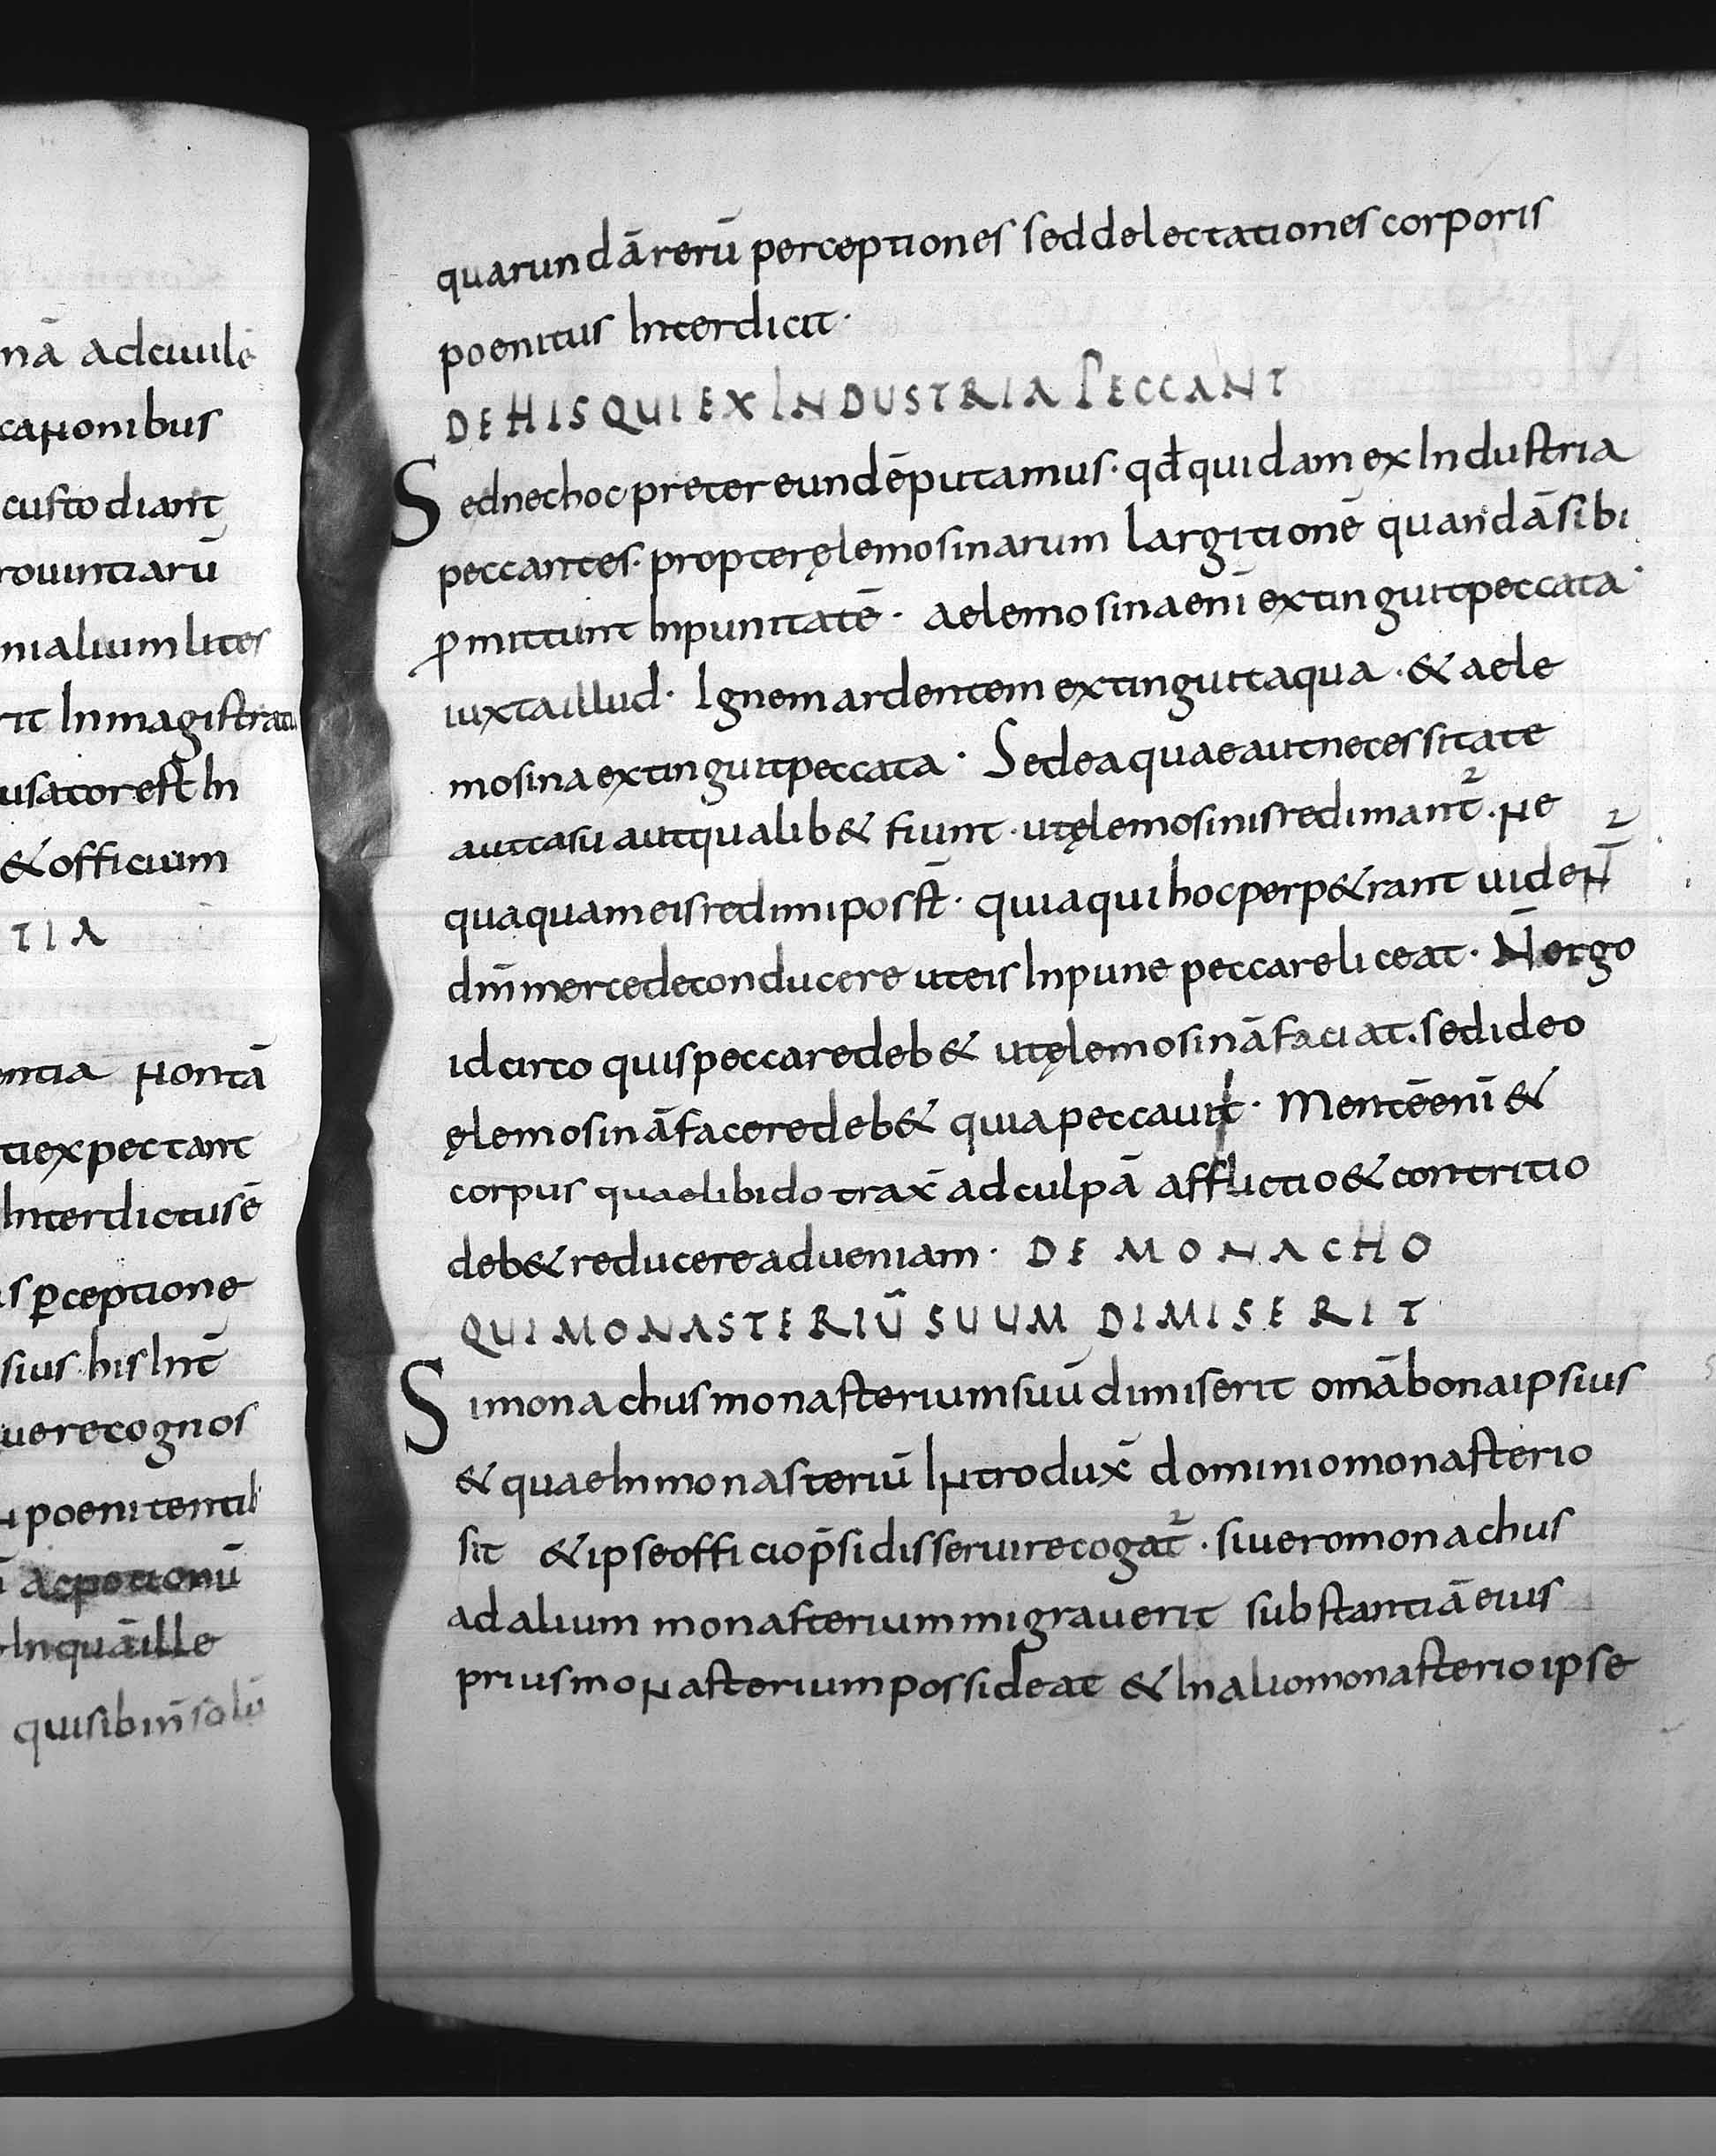 nā adciuile
cationibus
custodiant
rouintiarū
nialiumlites
rit Inmagistratu
usatorest In
&officium
TIA
entia nontā
tiexpectant
Interdictusē
s ꝑceptione
sius his Int̄
uerecognos
poenitentib
acpotionū
Inquāille
quisibin̄solū
quarundārerū perceptiones seddelectationes corporis
poenitus Interdicit·
DEHISQUIEX INDUSTRIA PECCANT
Sednechocpretereundēputamus· qđquidamexIndustria
peccantes· propteręlemosinarum largitionē quandāsibi
ꝓmittunt Inpunitatē· aelemosinaenī extinguitpeccata·
iuxtaillud· Ignemardentemextinguitaqua·&aele
mosinaextinguitpeccata· Sedeaquaeautnecessitate
autcasuautqualib& fiunt·utęlemosinisredimant᷑·ne
quaquameisredimiposst̄· quiaquihocperp&rant uident᷑
dn̄mmercedeconducere uteisInpune peccareliceat· N̄ergo
idcirco quispeccaredeb& utęlemosināfaciat·sedideo
ęlemosināfaceredeb& quiapeccauit· Mentēenī &
corpus quaelibidotrax̄ adculpā afflictio&contritio
deb&reducereadueniam· DE MONACHO
QUIMONASTERIŪ SUUM DIMISERIT
Simonachusmonasteriumsuūdimiserit omābonaipsius
&quaeInmonasteriū Introdux̄ dominiomonasterio
sit &ipseofficiop̄sidisseruirecogat᷑·siueromonachus
adalium monasteriummigrauerit substantiāeius
priusmonasteriumpossideat &Inaliomonasterioipse